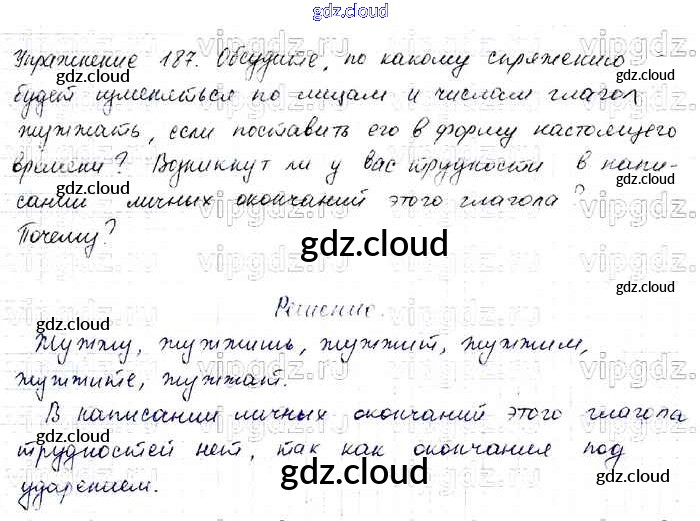 gdz.cloud
Упражнение 187. Обсудите, по какому спряжению
gdz.cloud gdz.cloud
будет изменяться по лицам и числам глагол
жужжать, если поставить его в форму настоящего
времени? Возникнут ли у вас трудности в напи-
gdz.cloud gdz.cloud
сании личных окончаний этого глагола?
Почему?
gdz.cloud
Решение.
gdz.cloud gdz.cloud
Жужжу, жужжишь, жужжит, жужжим,
жужжите, жужжат.
В написании личных окончаний этого глагола
gdz.cloud gdz.cloud
трудностей нет, так как окончания под
gdz.cloud
ударением.